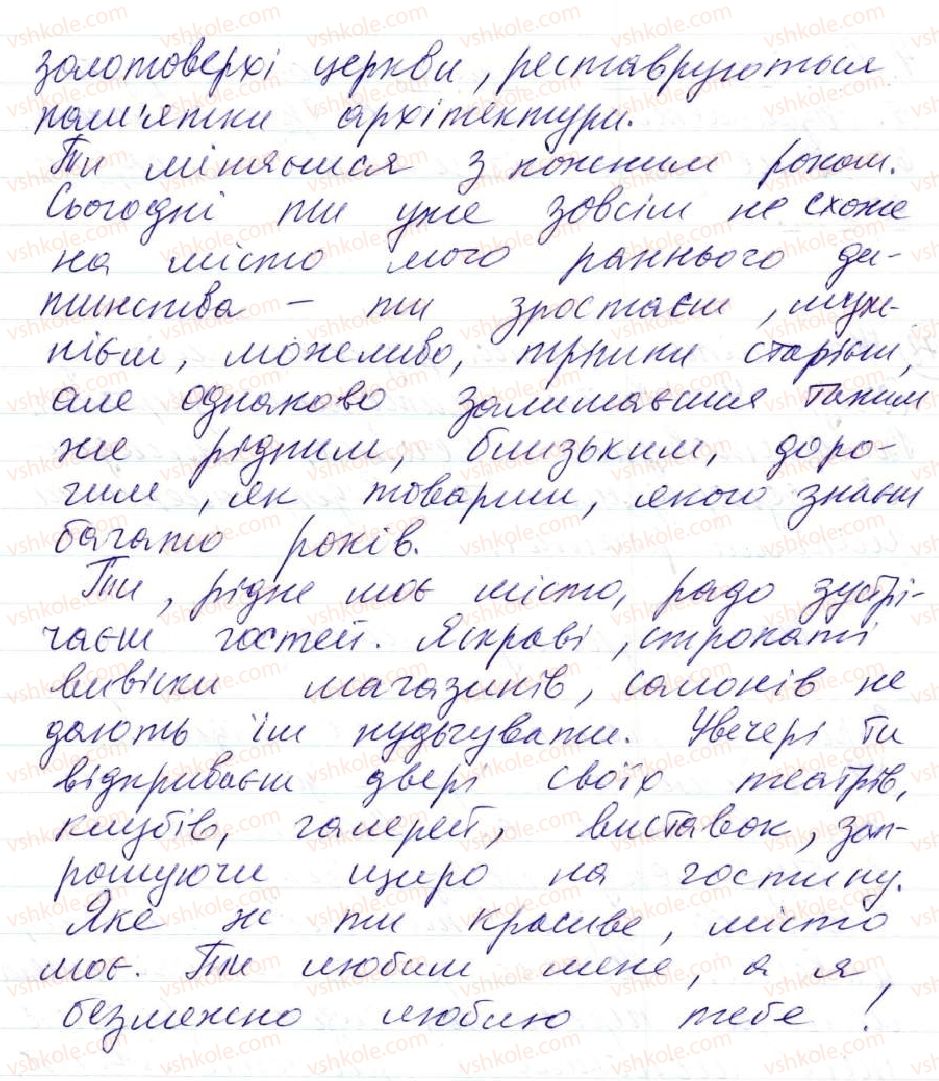 золотоверхі церкви, реставруються
пам'ятки архітектури.
Ти міняєшся з кожним роком.
Сьогодні ти уже зовсім не схоже
на місто мого раннього ди-
тинства – ти зростаєш, муж-
нієш, можливо, трішки старієш,
але однаково залишаєшся таким
же рідним, близьким, доро-
гим, як товариш, якого знаєш
багато років.
Ти, рідне моє місто, радо зустрі-
чаєш гостей. Яскраві, строкаті
вивіски магазинів, салонів не
дають їм нудьгувати. Увечері ти
відкриваєш двері своїх театрів,
клубів, галерей, виставок, зап-
рошуючи щиро на гостину.
Яке ж ти красиве, місто
моє. Ти любиш мене, а я
безмежно люблю тебе!